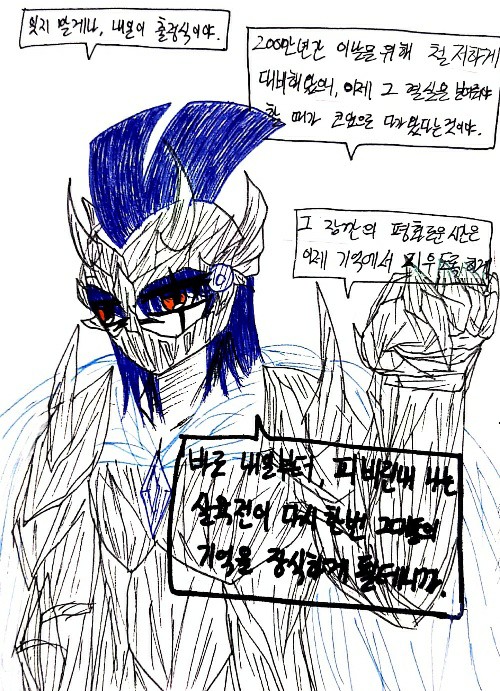 잊지 말게나, 내일이 출정식이야.
200만년간 이날을 위해 철저하게
대비해왔으니, 이제 그 결실을 맺어야
할 때가 코앞으로 다가왔다는것이야.
그 잠깐의 평화로운 시간은
이제 기억에서 지우도록 하게
바로 내일부터, 피비린내 나는
살육전이 다시 한번 그대들의
기억을 장식하게 될테니까.